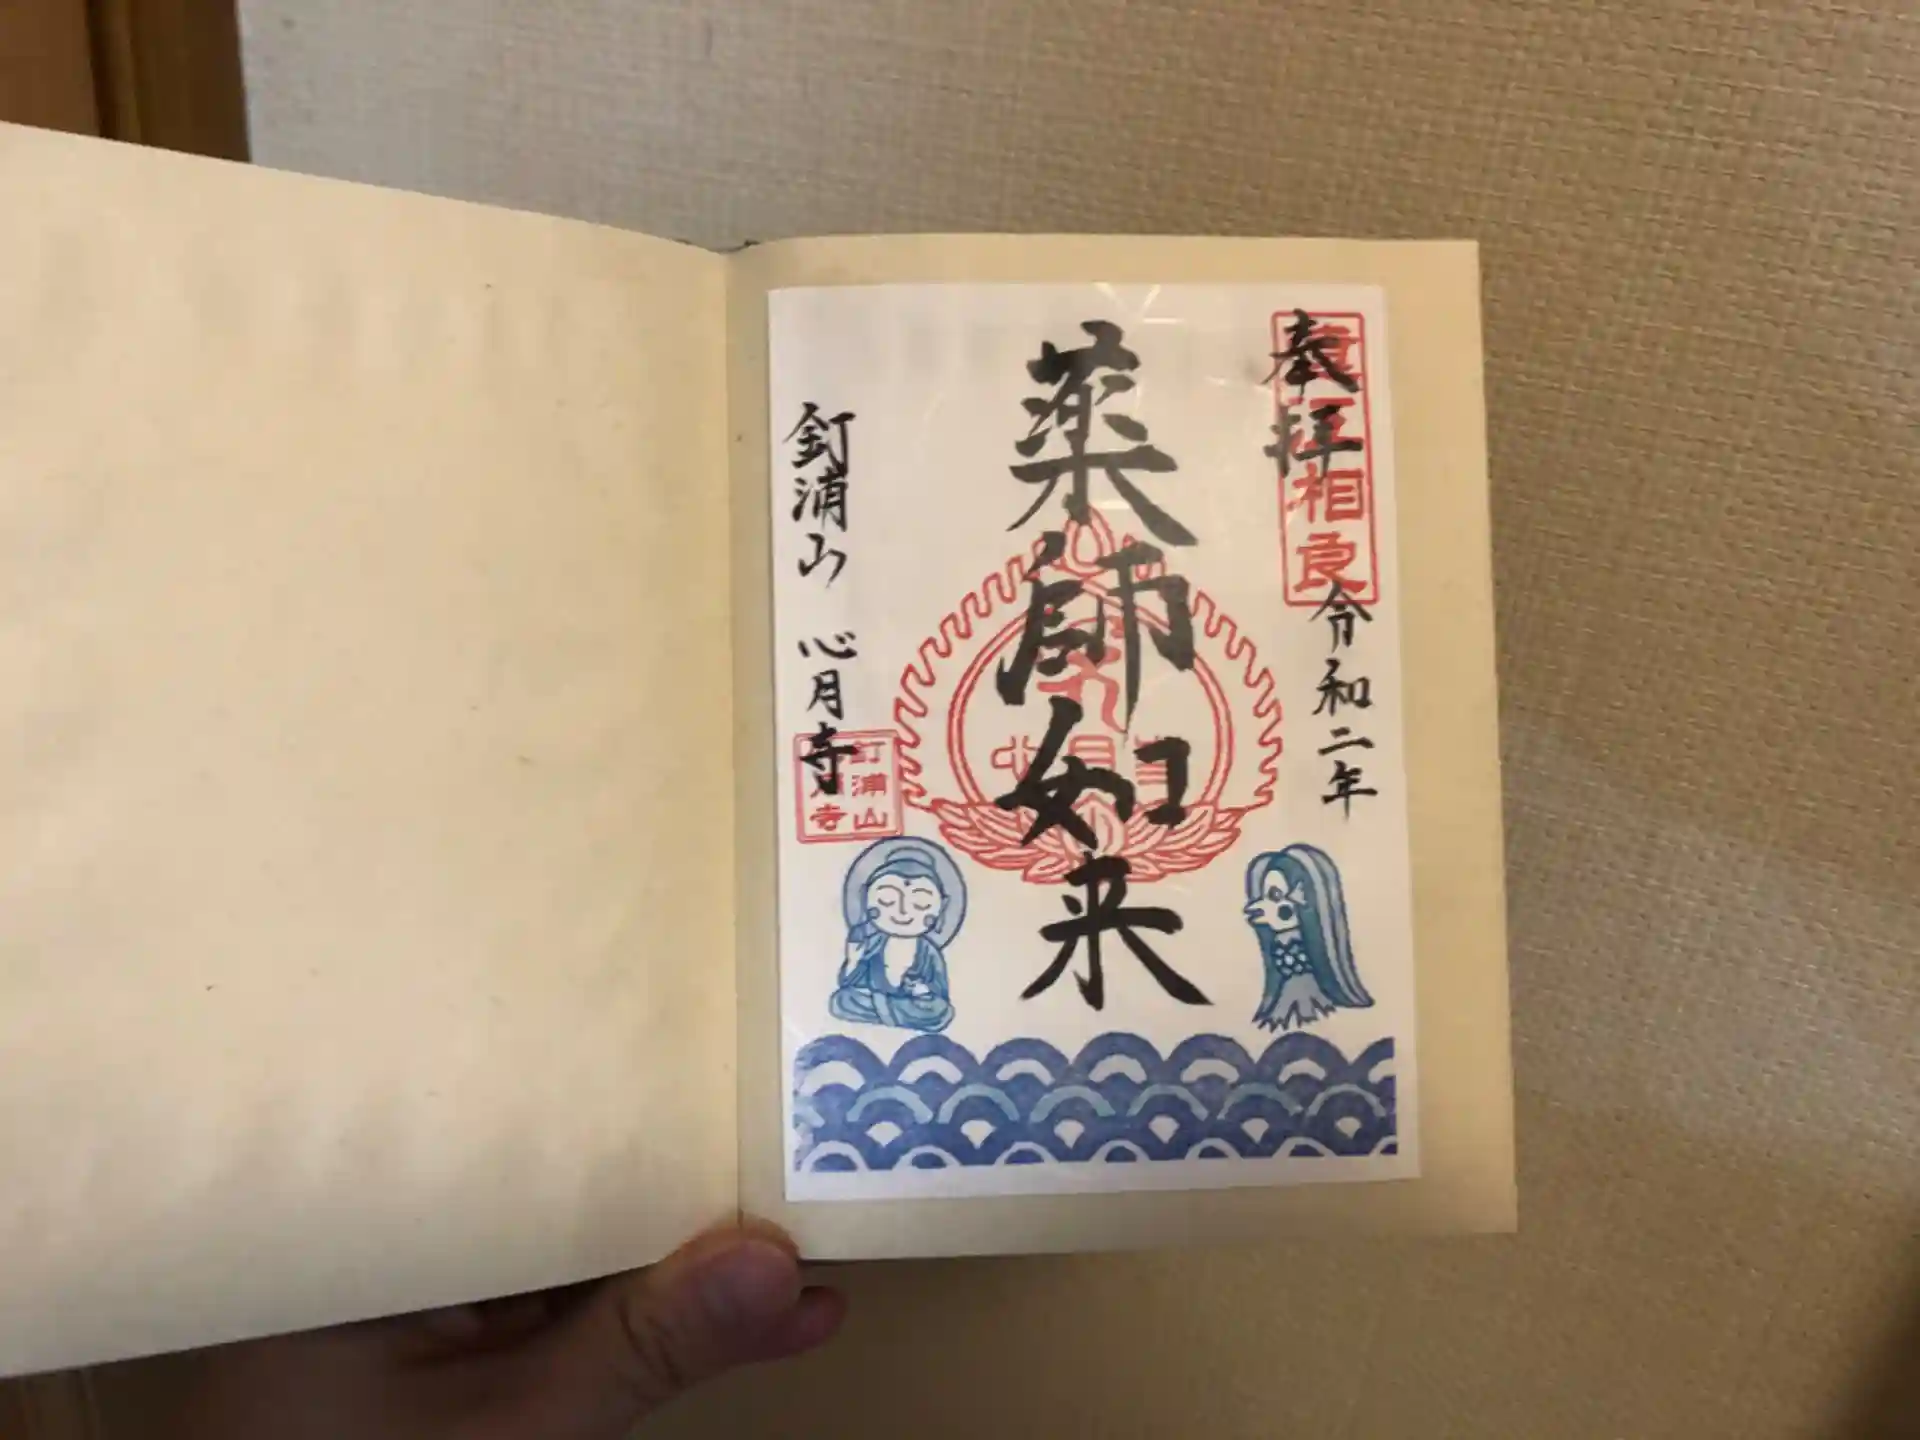 奉拝
遠江相良
令和二年
薬師如来
心月寺
釘浦山 心月寺
釘浦山
寺